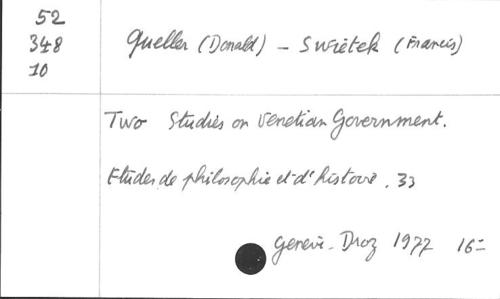 52
348
10
Queller (Donald) - Swietek (Francis)
Two Studies on Venetian Government.
Etudes de philosophie et d'histoire, 33
Genève - Droz 1977 16-